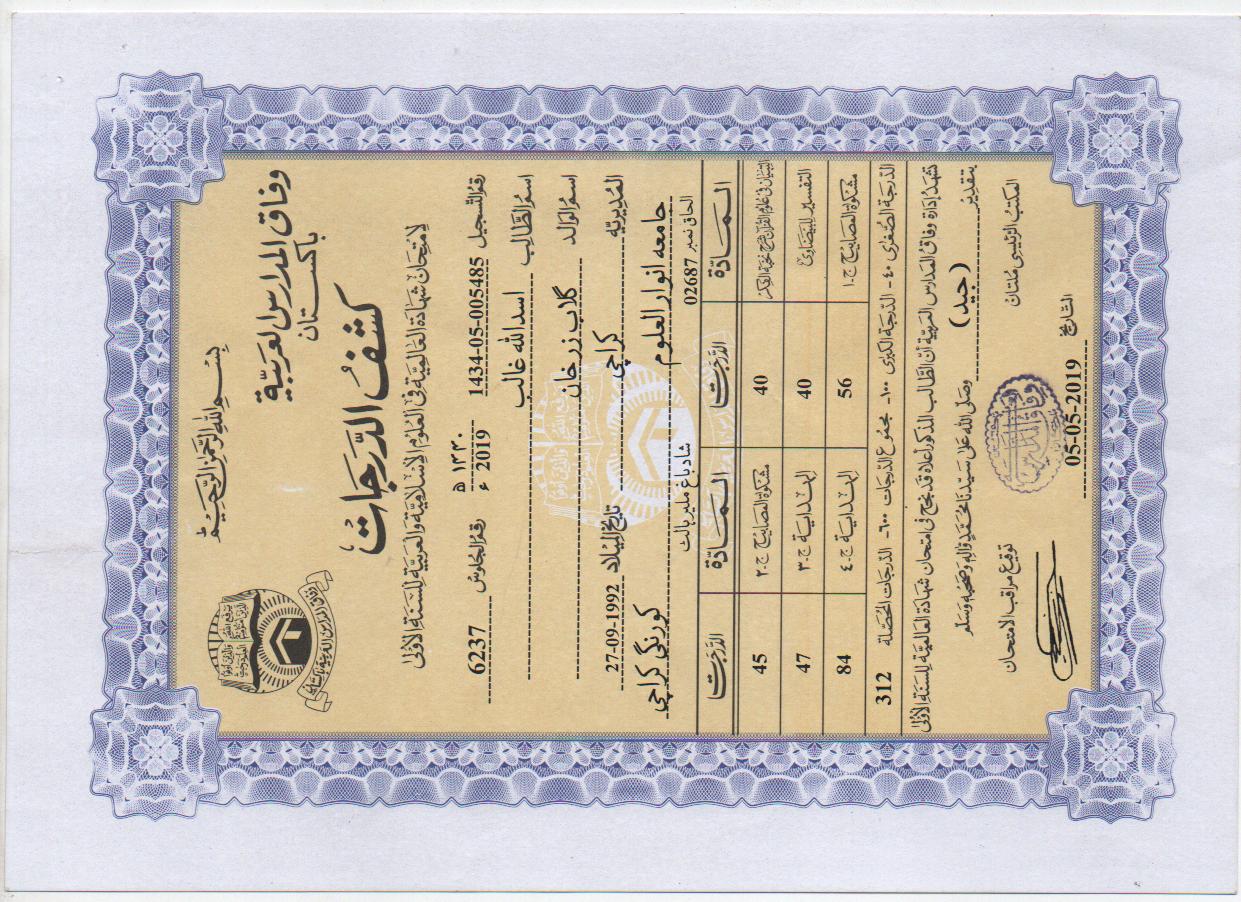 بِسْمِ اللهِ الرَّحْمٰنِ الرَّحِيْمِ
وفاق المدارس العربية
باكستان
كشف الدرجات
لامتحان شهادة العالمية في العلوم الإسلامية والعربية للسنة الأولى
رقم التسجيل 1434-05-005485 ١٤٤٠ ه 2019 ء رقم الجلوس 6237
اسم الطالب اسد الله غالب
اسم الوالد گلاب زر خان
المديرية کراچی تاريخ الميلاد 27-09-1992
جامعه انوار العلوم شاد باغ ملیر ہالٹ کورنگی کراچی
الحاق نمبر 02687
المادة الدرجات المادة الدرجات
التبيان في علوم القرآن شرح نخبة الفكر 40 مشكوة المصابيح ج.٢ 45
التفسير للبيضاوي 40 الهداية ج.٣ 47
مشكوة المصابيح ج.١ 56 الهداية ج.٤ 84
الدرجة الصغرى ٤٠- الدرجة الكبرى ١٠٠- مجموع الدرجات ٦٠٠- الدرجات المحصلة 312
تشهد إدارة وفاق المدارس العربية أن الطالب المذكور أعلاه قد نجح في امتحان شهادة العالمية للسنة الأولى
بتقدير (جيد) وصلى الله على سيدنا محمد وآله وصحبه وسلم
المكتب الرئيسي ملتان
توقيع مراقب الامتحان
التاريخ 05-05-2019